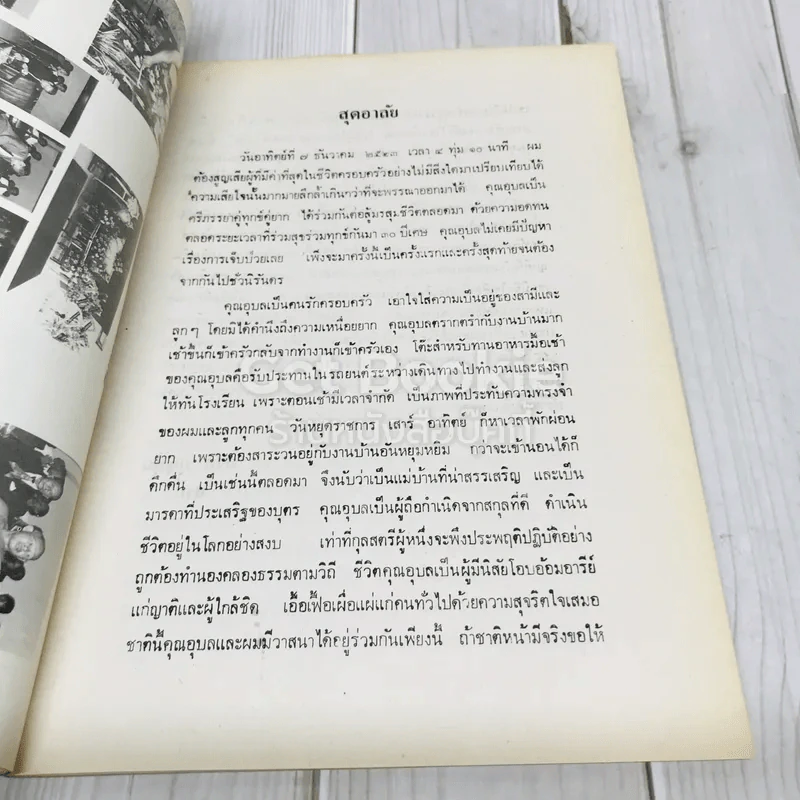 สุดอาลัย
วันอาทิตย์ที่ ๗ ธันวาคม ๒๕๒๓ เวลา ๔ ทุ่ม ๑๐ นาที ผม
ต้องสูญเสียผู้ที่มีค่าที่สุดในชีวิตครอบครัวอย่างไม่มีสิ่งใดมาเปรียบเทียบได้
ความเสียใจนั้นมากมายลึกล้ำเกินกว่าที่จะพรรณาออกมาได้ คุณอุบลเป็น
ศรีภรรยาคู่ทุกข์คู่ยาก ได้ร่วมกันต่อสู้มรสุมชีวิตตลอดมา ด้วยความอดทน
ตลอดระยะเวลาที่ร่วมสุขร่วมทุกข์กันมา ๓๐ ปีเศษ คุณอุบลไม่เคยมีปัญหา
เรื่องการเจ็บป่วยเลย เพิ่งจะมาครั้งนี้เป็นครั้งแรกและครั้งสุดท้ายจนต้อง
จากกันไปชั่วนิรันดร
คุณอุบลเป็นคนรักครอบครัว เอาใจใส่ความเป็นอยู่ของสามีและ
ลูก ๆ โดยมิได้คำนึงถึงความเหนื่อยยาก คุณอุบลตรากตรำกับงานบ้านมาก
เช้าขึ้นก็เข้าครัวกลับจากทำงานก็เข้าครัวเอง โต๊ะสำหรับทานอาหารมื้อเช้า
ของคุณอุบลคือรับประทานในรถยนต์ระหว่างเดินทางไปทำงานและส่งลูก
ให้ทันโรงเรียน เพราะตอนเช้ามีเวลาจำกัด เป็นภาพที่ประทับความทรงจำ
ของผมและลูกทุกคน วันหยุดราชการ เสาร์ อาทิตย์ ก็หาเวลาพักผ่อน
ยาก เพราะต้องสาระวนอยู่กับงานบ้านอันหยุมหยิม กว่าจะเข้านอนได้ก็
ดึกดื่น เป็นเช่นนี้ตลอดมา จึงนับว่าเป็นแม่บ้านที่น่าสรรเสริญ และเป็น
มารดาที่ประเสริฐของบุตร คุณอุบลเป็นผู้ถือกำเนิดจากสกุลที่ดี ดำเนิน
ชีวิตอยู่ในโลกอย่างสงบ เท่าที่กุลสตรีผู้หนึ่งจะพึงประพฤติปฏิบัติอย่าง
ถูกต้องทำนองคลองธรรมตามวิถี ชีวิตคุณอุบลเป็นผู้มีนิสัยโอบอ้อมอารีย์
แก่ญาติและผู้ใกล้ชิด เอื้อเฟื้อเผื่อแผ่แก่คนทั่วไปด้วยความสุจริตใจเสมอ
ชาตินี้คุณอุบลและผมมีวาสนาได้อยู่ร่วมกันเพียงนี้ ถ้าชาติหน้ามีจริงขอให้